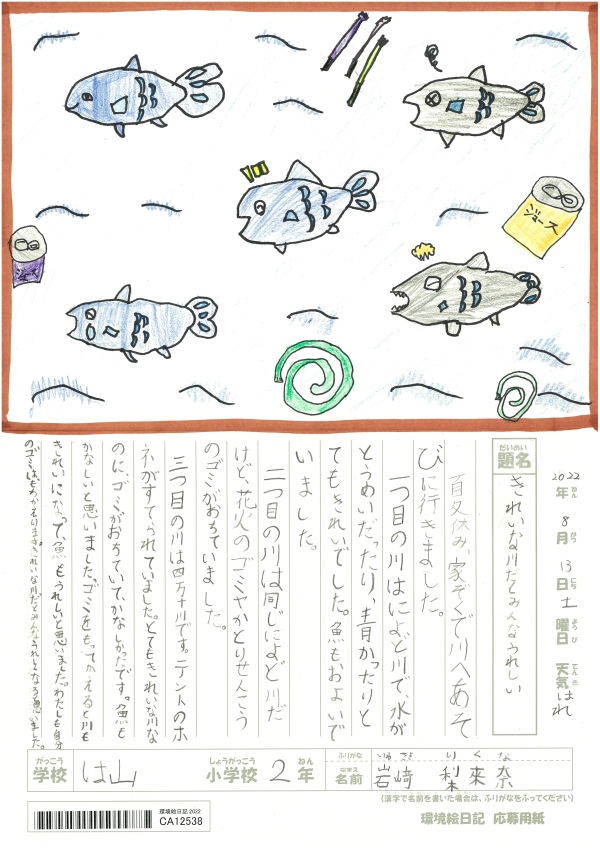 ジュース
ジュース
2022年 8月 13日 土曜日 天気 はれ
ねん がつ にち ようび てんき
だいめい
題名
きれいな川だとみんなうれしい
夏休み、家ぞくで川へあそ
びに行きました。
一つ目の川はによど川で、水が
とうめいだったり、青かったりと
てもきれいでした。魚もおよいで
いました。
二つ目の川は同じによど川だ
けど、花火のゴミやかとりせんこう
のゴミがおちていました。
三つ目の川は四万十川です。テントのホ
ネがすてられていました。とてもきれいな川な
のに、ゴミがおちていて、かなしかったです。魚も
かなしいと思いました。ゴミをもってかえると川も
きれいになって、魚もうれしいと思いました。わたしも自分
のゴミはもちかえります。きれいな川だとみんなうれしくなると思いました。
がっこう しょうがっこう ねん
学校 は山 小学校 2年
ふりがな いわさき りくな
なまえ
名前 岩崎 梨來奈
(漢字で名前を書いた場合は、ふりがなをふってください)
環境絵日記 2022
CA12538
環境絵日記 応募用紙